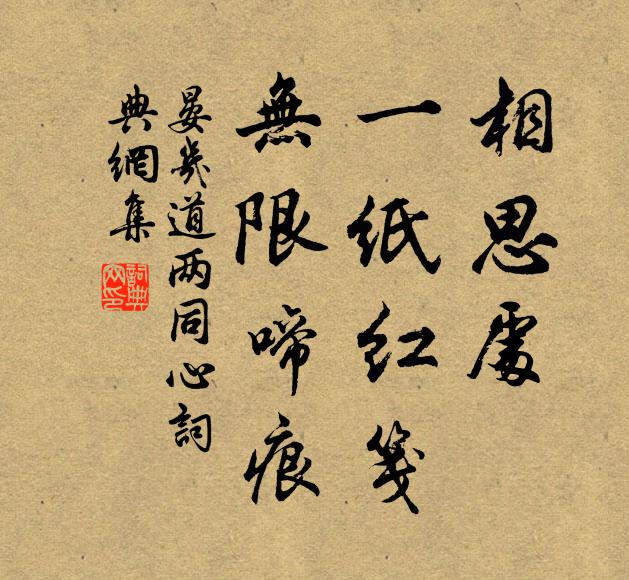 相思處
一紙紅箋
無限啼痕
晏幾道两同心詞
典網集
詞典
网印